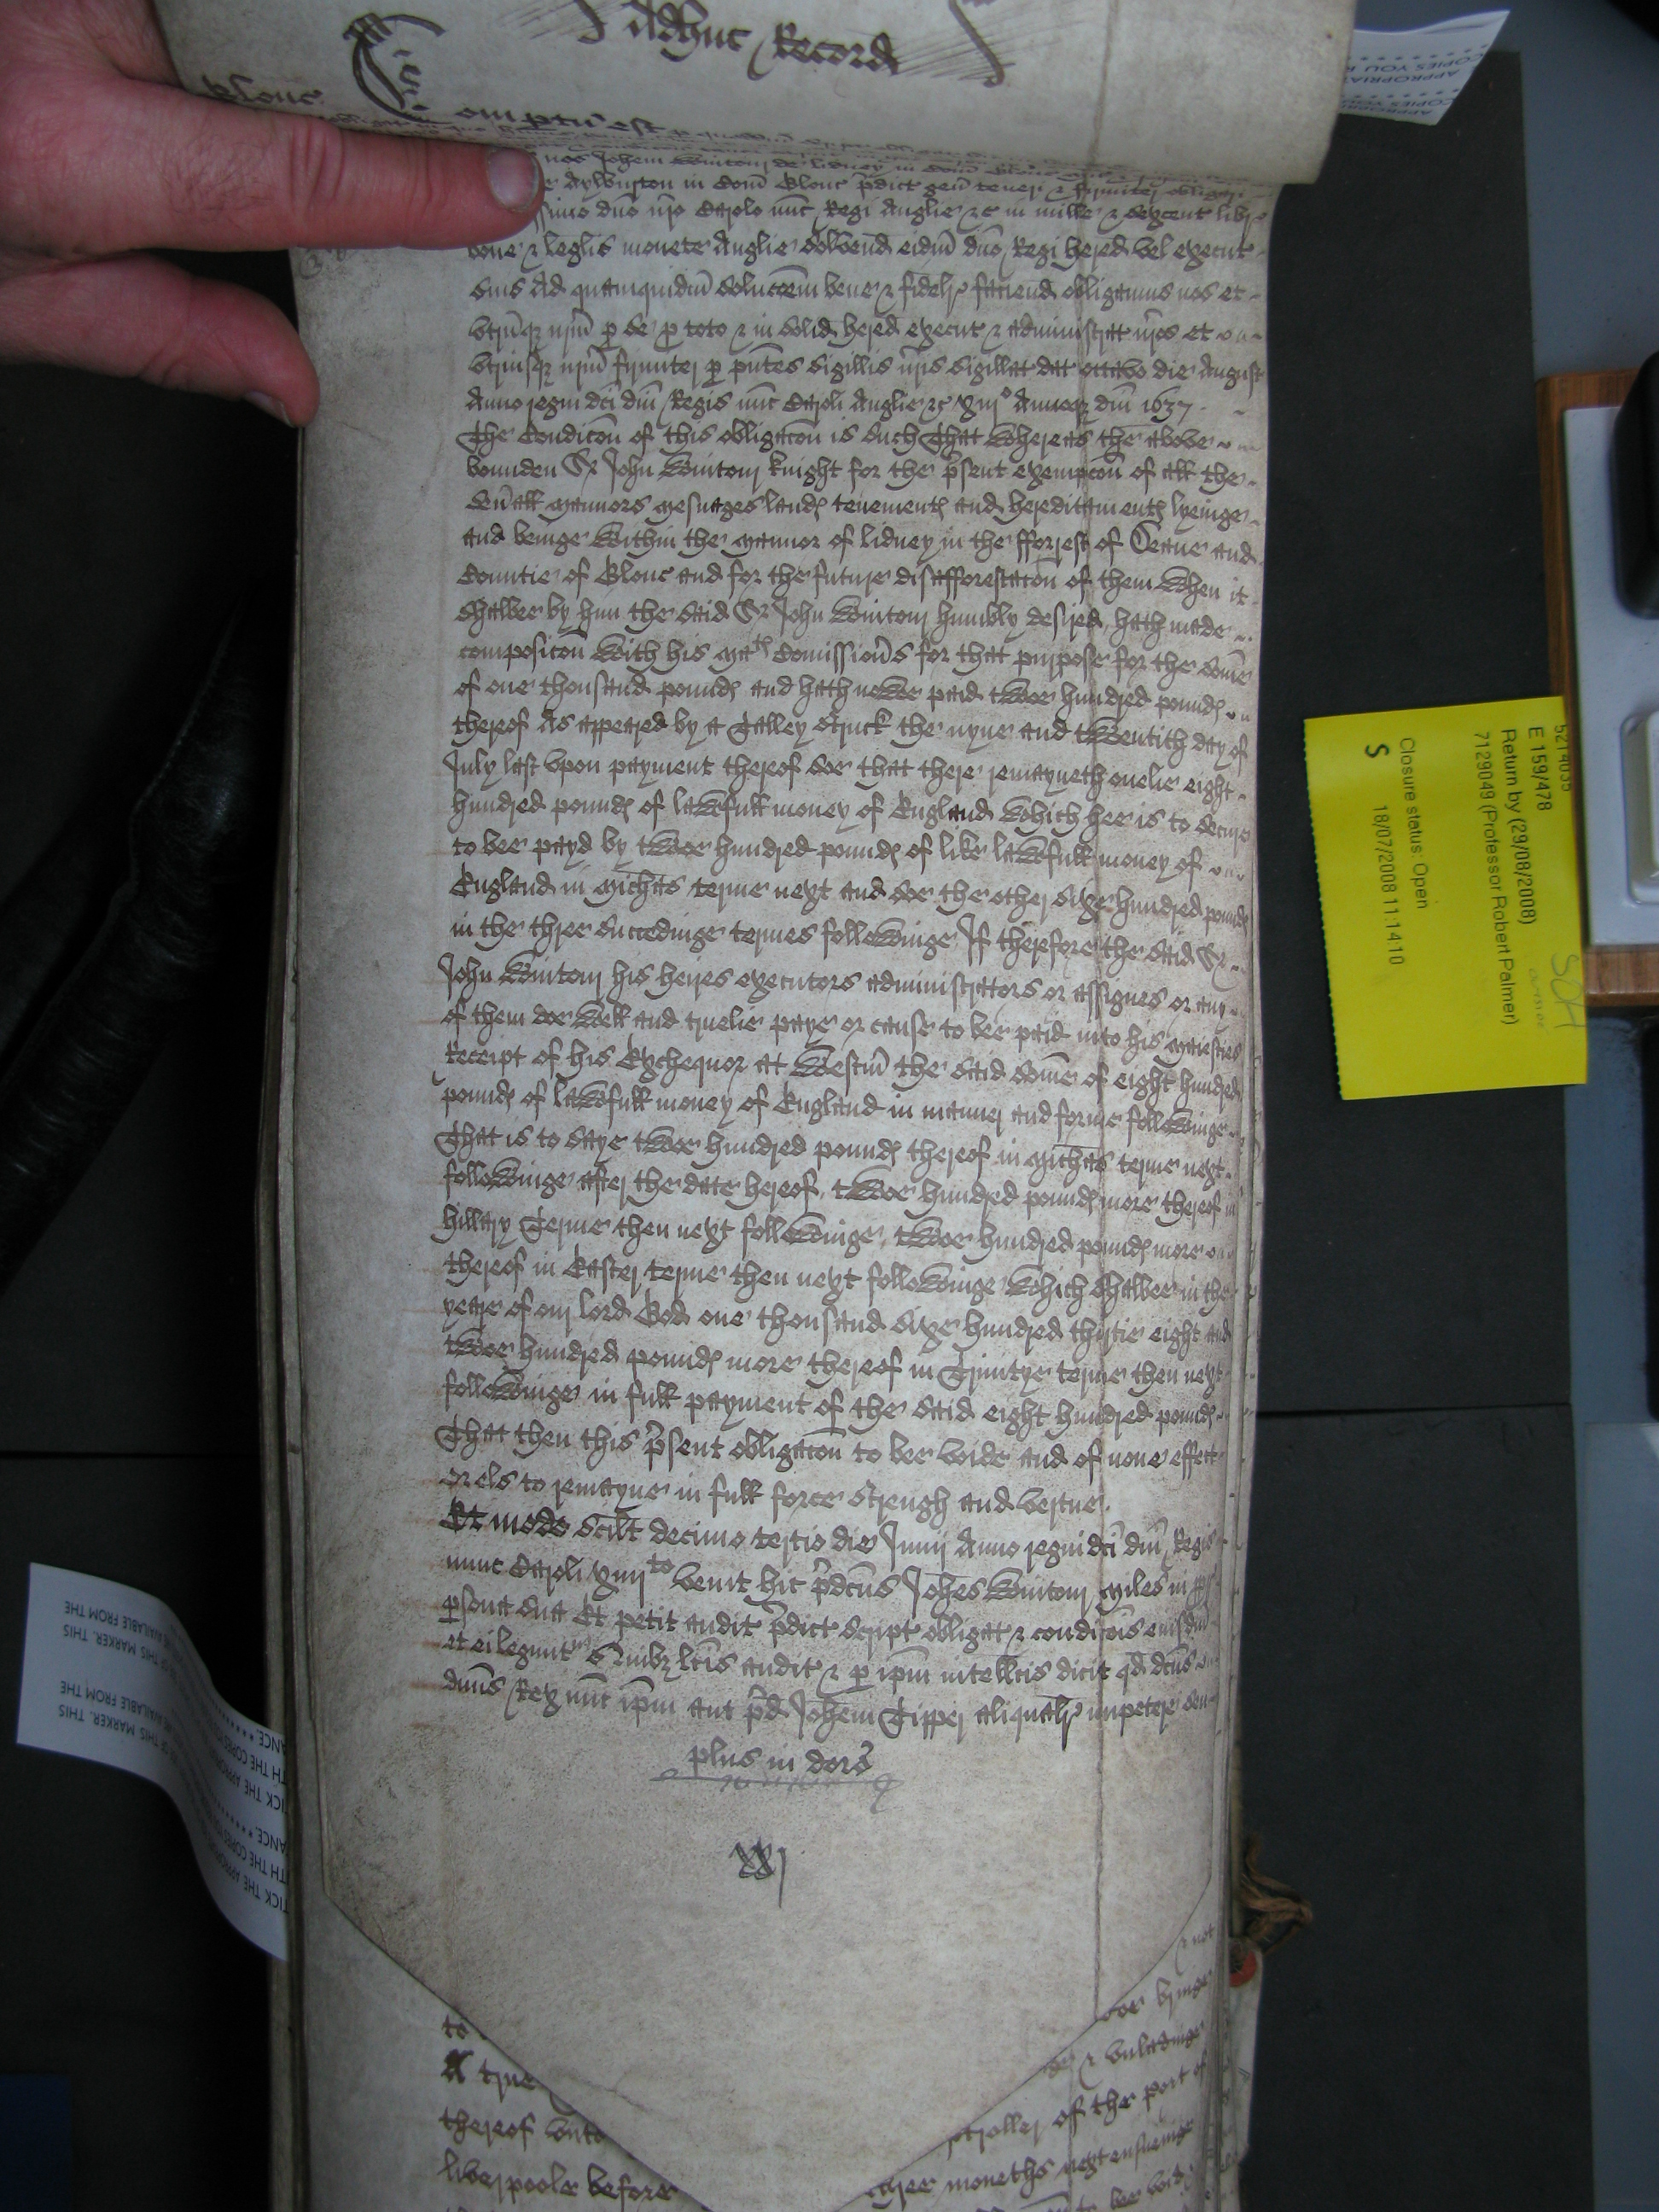 Adhuc Record
Glouc
Comptu est p quoddam
nos Johem Wintour de Lidney in Com Glouc
Aylburton in Com Glouc pdict gen teneri & firmiter obligari
duo nro Carolo nuc Regi Anglie &c in mille & sexcent libr
bone & leglis monete Anglie Solvend eidm dno Regi hered vel execut
suis Ad quamquidm solucoem bene & fidelr faciend obligamus nos et
utrumqz nrm p se p toto & in solid hered execut & administrat nros et
utriusqz nrm firmiter p pntes Sigillis nris Sigillat dat octavo die August
Anno regni dci dni Regis nuc Caroli Anglie &c xiijo Annoqz dni 1637
The Condicon of this obligacon is such That whereas the above
bounden Sr John Wintour knight for the psent exempcon of all the
sevall mannors mesuages lands tenements and hereditaments lyeinge
and beinge within the mannor of Lidney in the fforrest of Deane and
Countie of Glouc and for the future disafforestacon of them when it
shalbee by him the said Sr John Wintour humbly desired, hath made
composicon with his mats Comissions for that purpose for the some
of one thousand pounds and hath nowe paid twoe hundred pounds
thereof As appeared by a Talley struck the nyne and twentith day of
July last upon payment thereof soe that there remayneth onelie eight
hundred pounds of lawfull money of England which hee is to secure
to bee payd by twoe hundred pounds of like lawfull money of
England in Michas terme next and soe the other sixe hundred pounds
in the three succedinge termes followinge If therefore the said Sr
John Wintour his heires executors administrators or assignes or any
of them doe well and truelie paye or cause to bee paid into his maiesties
Receipt of his Exchequor at Westm the said some of eight hundred
pounds of lawfull money of England in manner and forme followinge
That is to saye twoe hundred pounds thereof in Michas terme next
followinge after the date hereof, twoe hundred pounds more thereof in
hillary Terme then next followinge, twoe hundred pounds more
thereof in Easter terme then next followinge which shalbee in the
yeare of our lord God one thousand sixe hundred thirtie eight and
twoe hundred pounds more thereof in Trinitye terme then next
followinge in full payment of the said eight hundred pounds
That then this psent obligacon to bee voide and of none effect
or els to remayne in full force strengh and vertue.
Et modo scilt decimo tertio die Junij Anno regni dci dni Regis
nunc Caroli xiiijto venit hic pdcus Johes Wintour miles in
psona sua Et petit audit pdict script obligat & condicois eiusdm
et ei legunt Quibz lcis audit & p ipm intellcis dicit qd dcus
dnus Rex nuc ipm aut pd Johem Tipper aliqualr impetere seu
plus in dors
xxj
to
A true
thereof unto
liverpoole before
& not
bringe
& unladinge
of the port of
moneths next ensueinge
to bee void
5214035
E 159/478
Return by (29/08/2008)
7129049 (Professor Robert Palmer)
Closure status: Open
S 18/07/2008 11:14:10
APPROPRIA
COPIES YOU
THIS MARKER. THIS
AVAILABLE FROM THE
TICK THE APPRO
WITH THE COPIES YOU